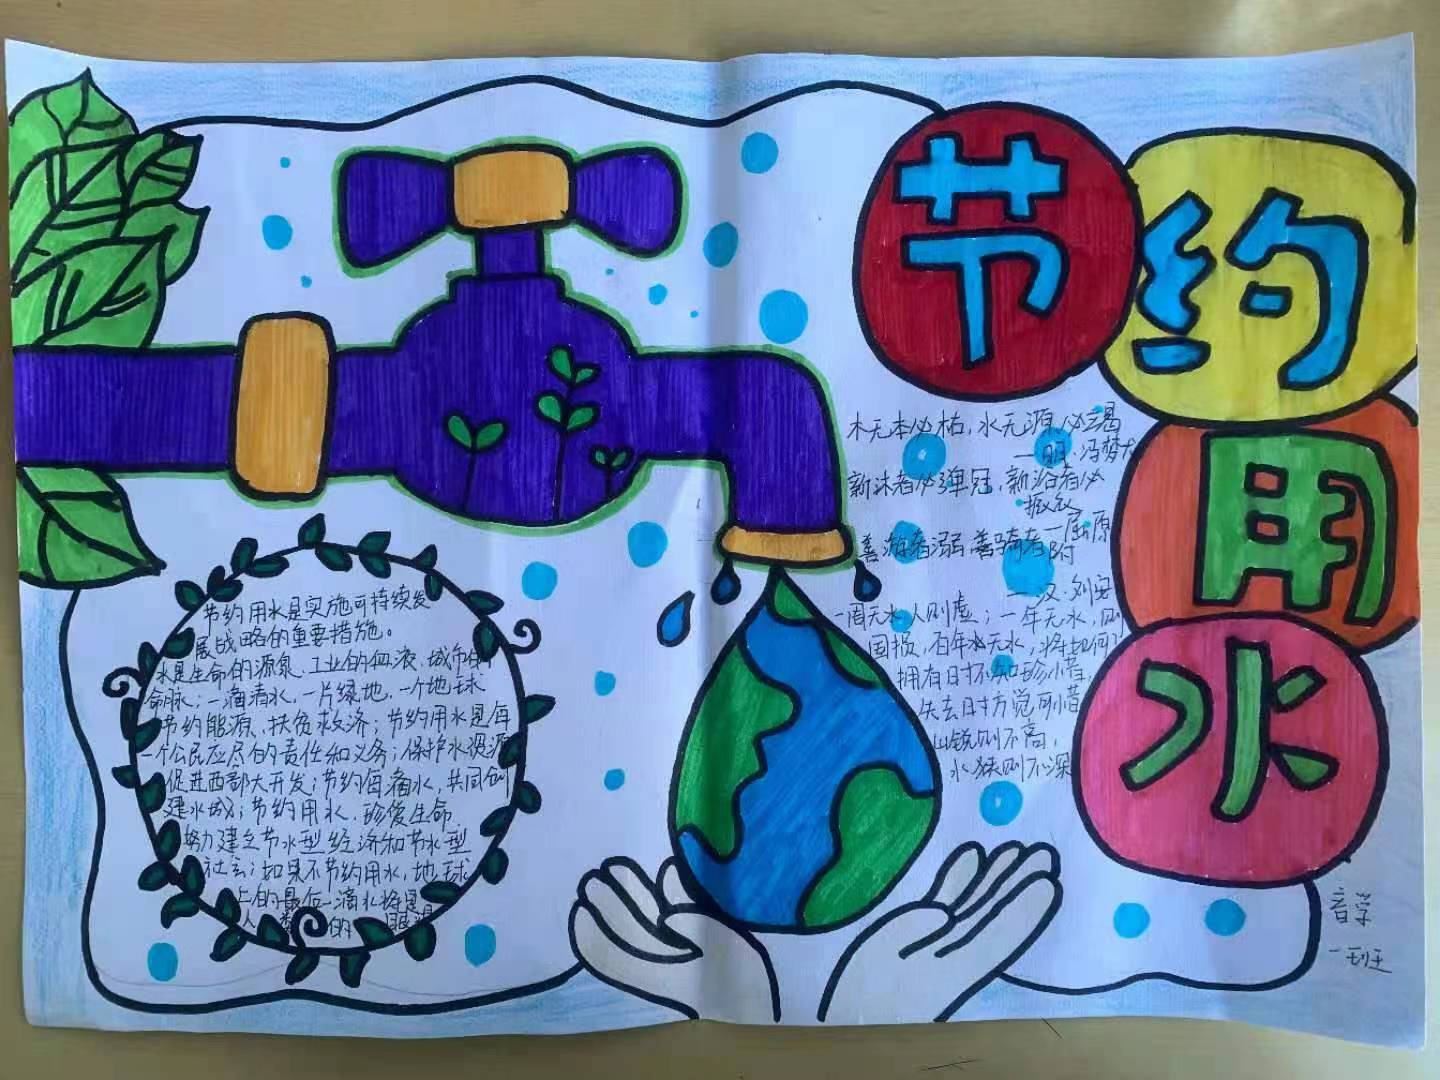 节约用水
木无本必枯，水无源必竭
—明·冯梦龙
新沐者必弹冠，新浴者必
振衣
—屈原
善游者溺 善骑者
附
—汉·刘安
一周无水，人则虚；一年无水，则
国损，百年水无水，将如何？
拥有时不知珍惜，
失去时方觉可惜
山锐则不高，
水狭则不深
节约用水是实施可持续发
展战略的重要措施。
水是生命的源泉、工业的血液、城市的
命脉；一滴清水，一片绿地，一个地球
节约能源、扶贫救济；节约用水是每
一个公民应尽的责任和义务；保护水资源
促进西部大开发；节约每滴水，共同创
建水城；节约用水、珍爱生命
努力建立节水型经济和节水型
社会；如果不节约用水，地球
上的最后一滴水将是
人类的眼泪
音学
一班